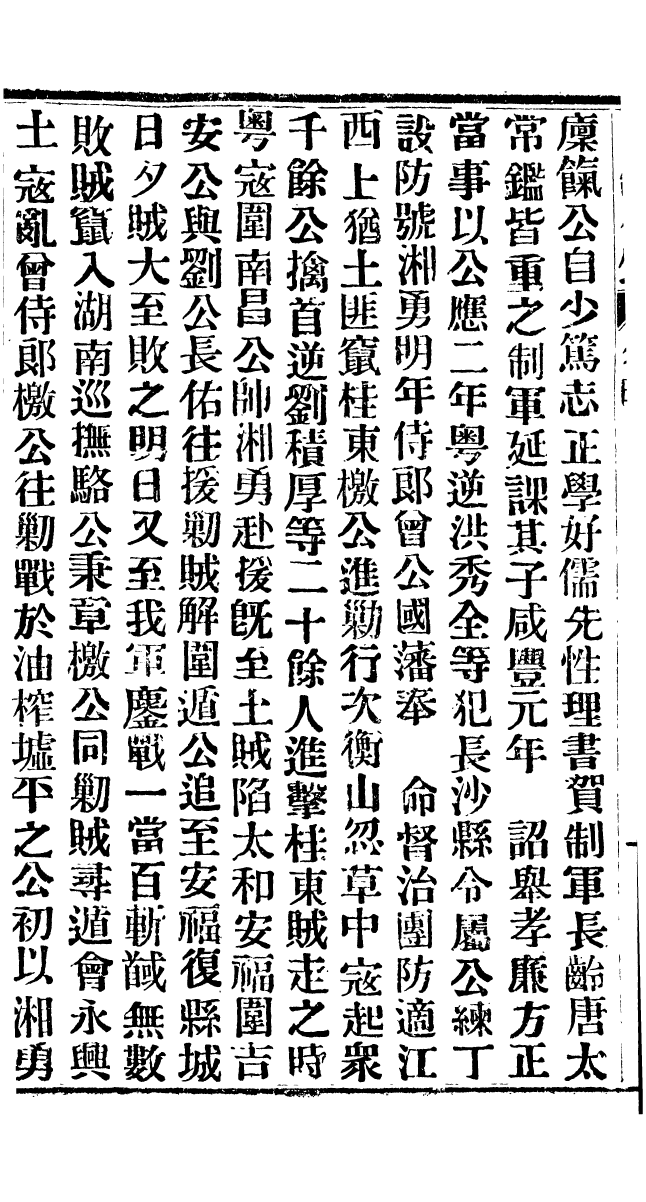 廩餼公自少篤志正學好儒先性理書賀制軍長齡唐太
常鑑皆重之制軍延課其子咸豐元年　詔舉孝廉方正
當事以公應二年粵逆洪秀全等犯長沙縣令屬公練丁
設防號湘勇明年侍郎曾公國藩奉　命督治團防適江
西上猶土匪竄桂東檄公進勦行次衡山忽草中寇起衆
千餘公擒首逆劉積厚等二十餘人進擊桂東賊走之時
粵寇圍南昌公帥湘勇赴援旣至土賊陷太和安福圍吉
安公與劉公長佑往援勦賊解圍遁公追至安福復縣城
日夕賊大至敗之明日又至我軍鏖戰一當百斬馘無數
敗賊竄入湖南巡撫駱公秉章檄公同勦賊尋遁會永興
土寇亂曾侍郎檄公往勦戰於油榨墟平之公初以湘勇